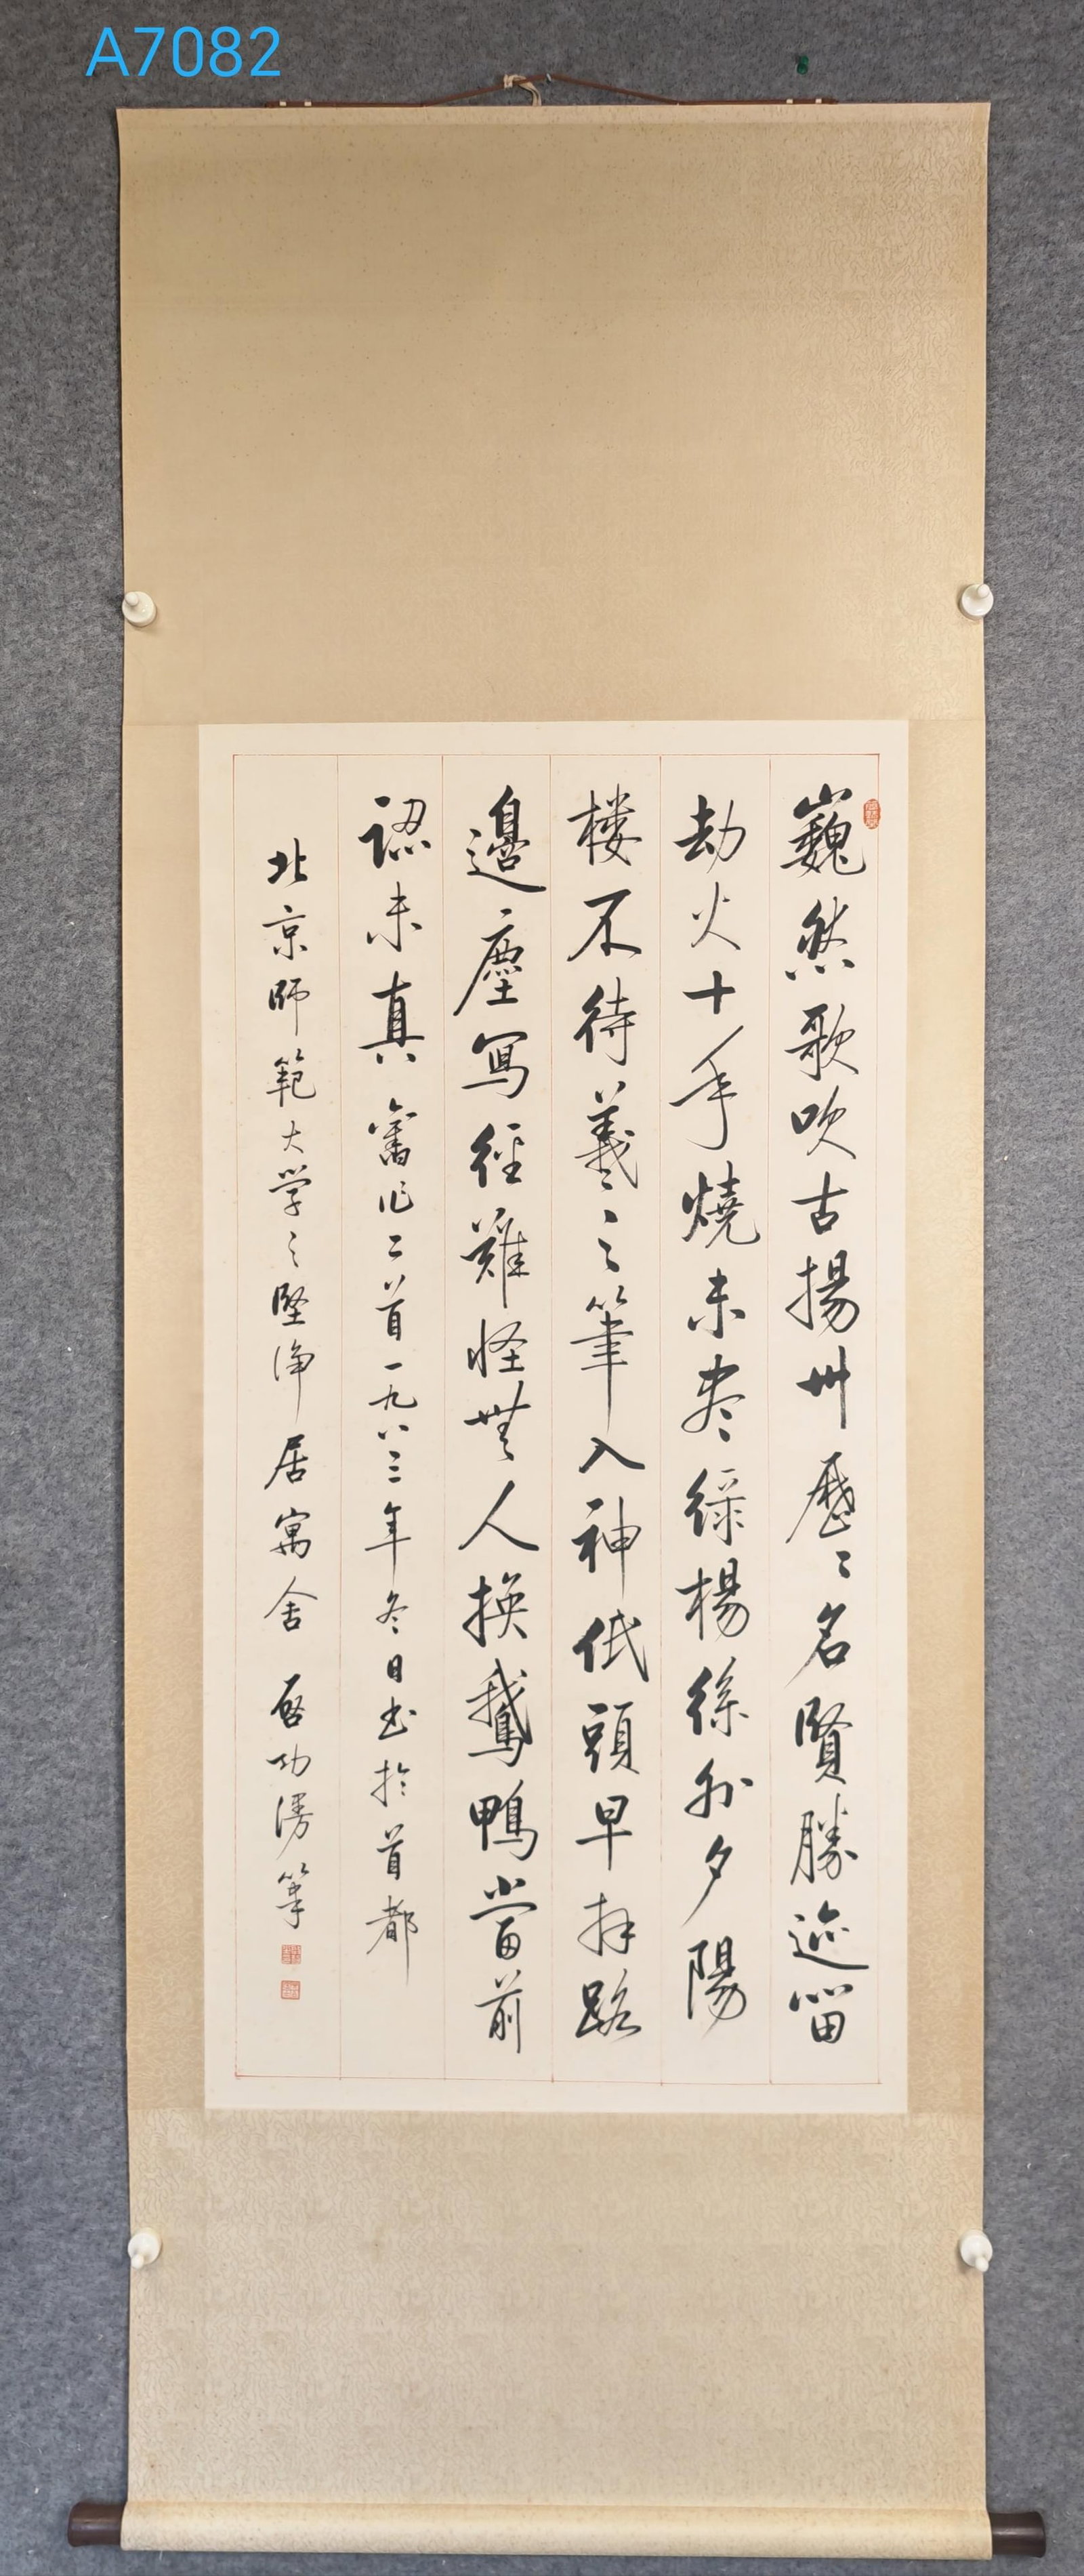 A7082
巍然歌吹古揚州歷〻名賢勝迹留
劫火十年燒未盡綠楊絲外夕陽
樓不待羲之筆入神低頭早拜路
邊塵寫經難怪無人換鵝鴨當前
認未真 舊作二首一九八三年冬日書於首都
北京師範大学之堅淨居寓舍 啟功漫筆